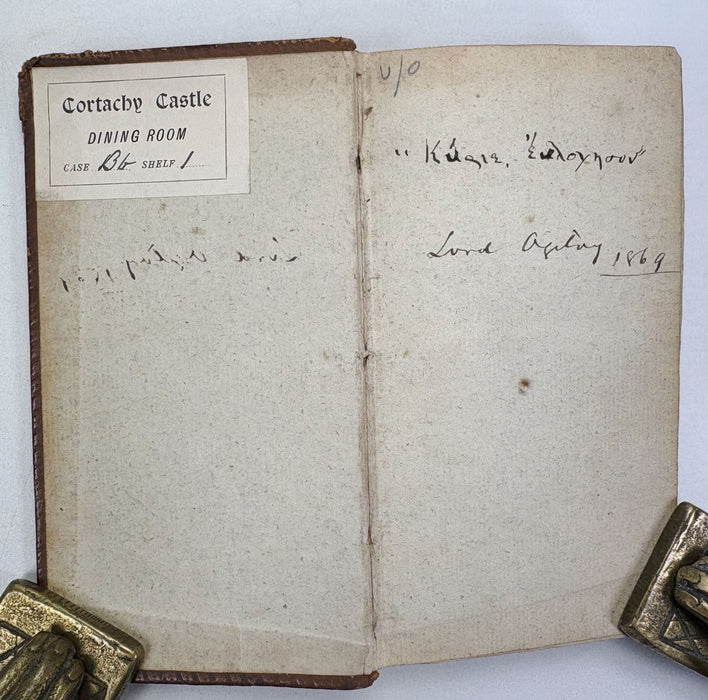 Cortachy Castle
DINING ROOM
CASE B4 SHELF 1
V/0
"Κύριε, Ἐυλογησον"
Lord Ogilvy 1869